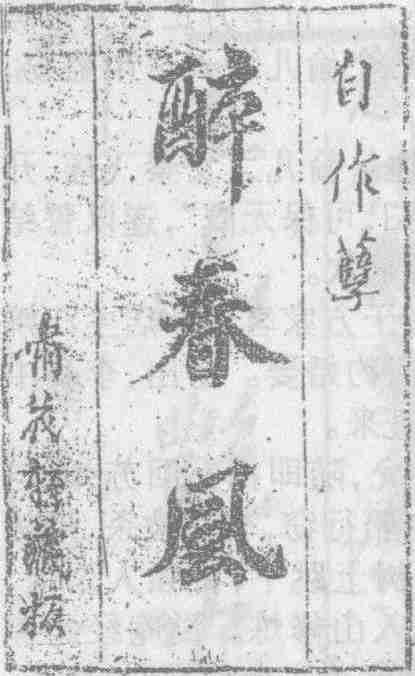 自作孽
醉春風
嘯花軒藏板